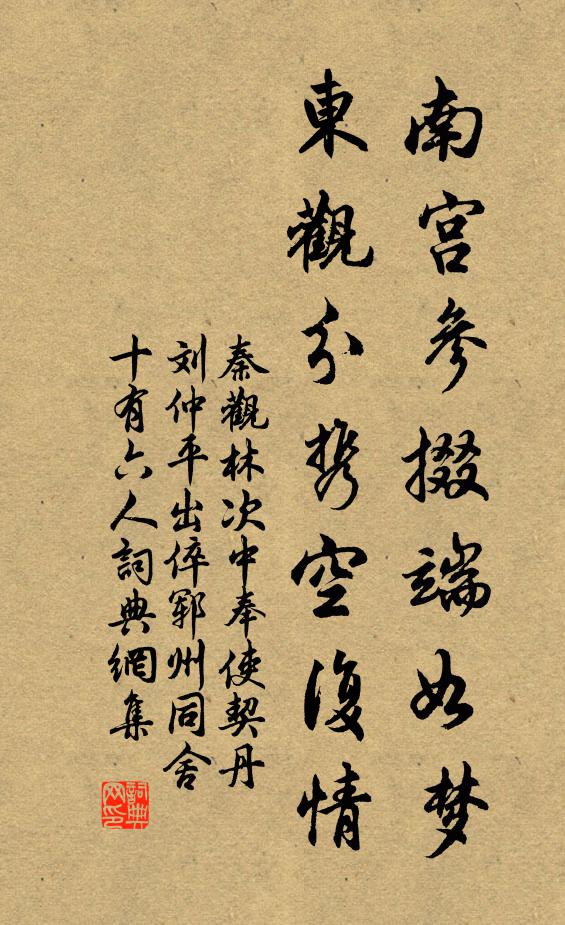 南宫參掇端如梦
東觀分携空復情
秦觀林次中奉使契丹
刘仲平出倅郓州同舍
十有六人詞典網集
詞典
网印